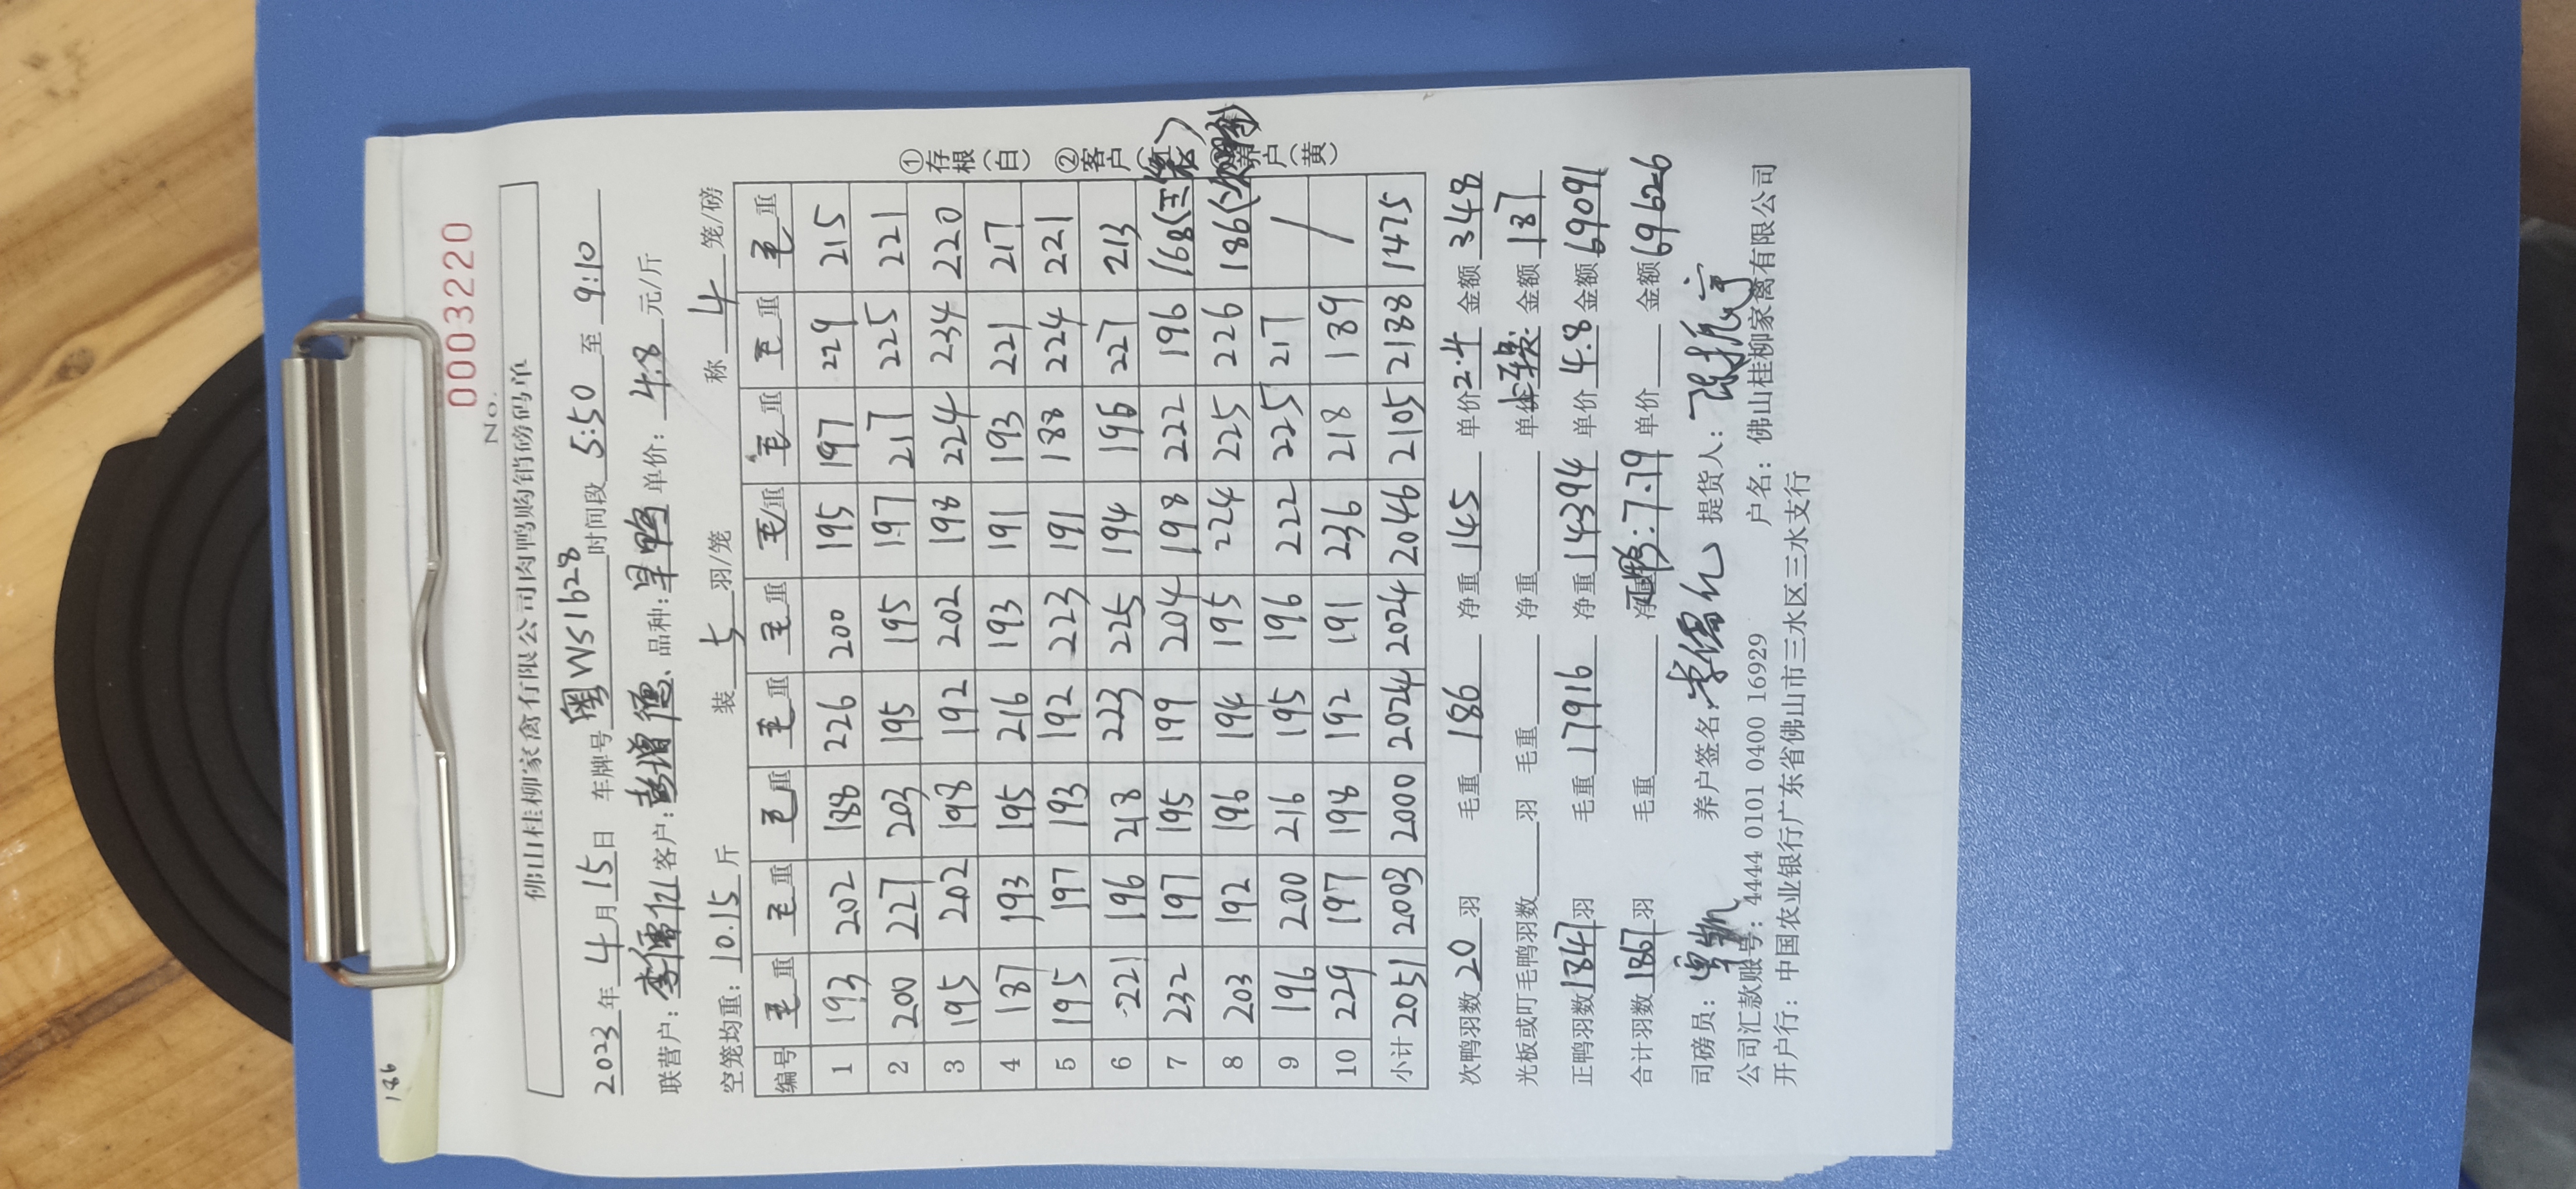 186
No. 0003220
佛山桂柳家禽有限公司肉鸭购销磅码单
2023年4月15日 车牌号粤WS1628时间段5:50至9:10
联营户:李儒亿 客户:彭增德 品种:旱鸭 单价:4.8元/斤
空笼均重:10.15斤 装5羽/笼 称4笼/磅
编号 毛重 毛重 毛重 毛重 毛重 毛重 毛重 毛重 毛重
1 193 202 188 226 200 195 197 229 215
2 200 227 203 195 195 197 217 225 221
3 195 202 198 192 202 198 224 234 220
4 187 193 195 216 193 191 193 221 217
5 195 197 193 192 223 191 188 224 221
6 221 196 218 223 225 194 196 227 213
7 232 197 195 199 204 198 222 196 168(三笼)
8 203 192 196 194 195 224 225 226 186(次鸭)
9 196 200 216 195 196 222 225 217 /
10 229 197 198 192 191 236 218 189
小计 2051 2003 2000 2024 2024 2046 2105 2188 1475
①存根(白) ②客户(红) 养户(黄)
次鸭羽数20羽 毛重186 净重145 单价2.4 金额348
光板或叮毛鸭羽数 羽 毛重 净重 单价 金额187
正鸭羽数1847羽 毛重17916 净重14394 单价4.8 金额69091
合计羽数1867羽 毛重 净重 正鸭:7.79 单价 金额69626
司磅员: 养户签名:李儒亿 提货人:
公司汇款账号:4444 0101 0400 16929 户名:佛山桂柳家禽有限公司
开户行:中国农业银行广东省佛山市三水区三水支行